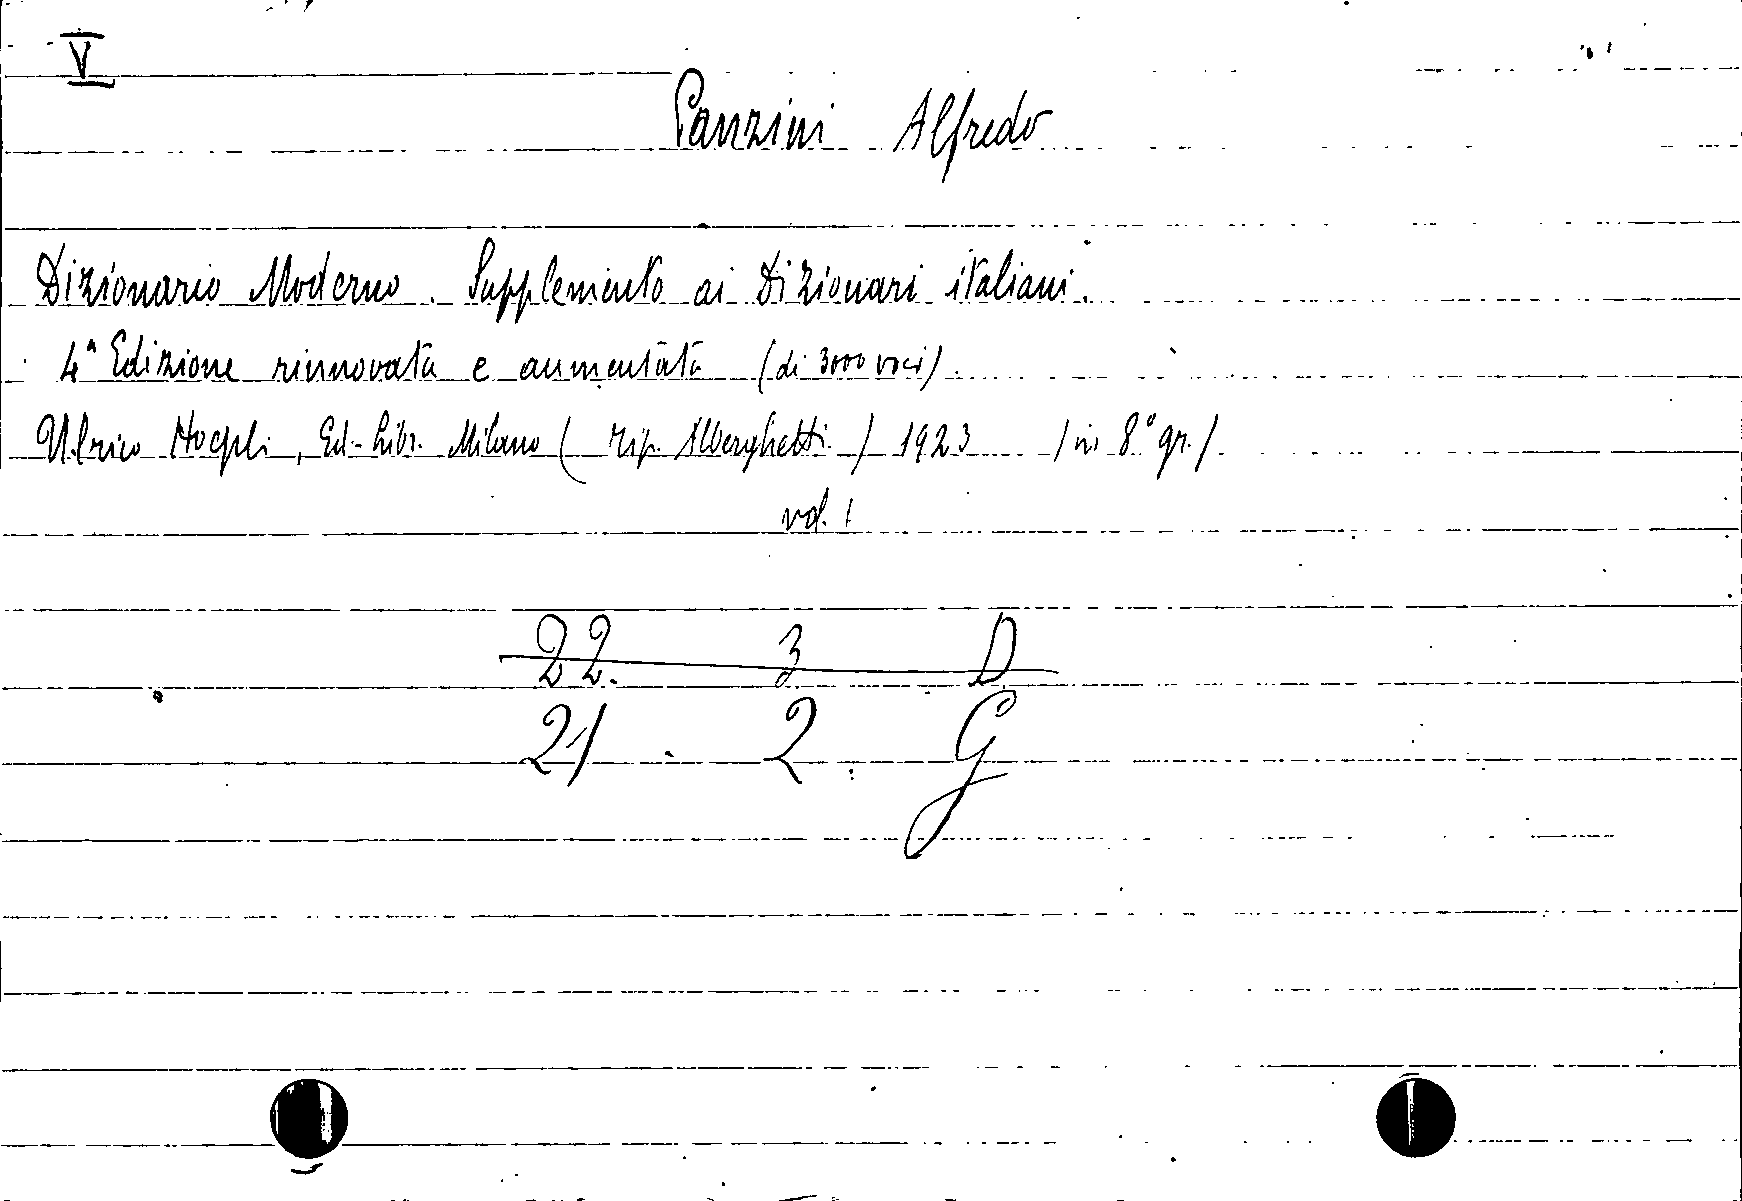 V
Panzini Alfredo
Dizionario Moderno. Supplemento ai Dizionari italiani.
4ª Edizione rinnovata e aumentata (di 3000 voci).
Ulrico Hoepli, Ed-Libr. Milano (tip. Alberghetti) 1923 / in 8° gr./
vol. 1
22. 3 D
21 . 2 . G